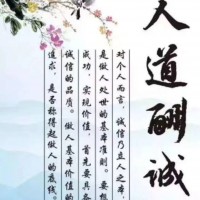 人道酬诚
对个人而言，诚信乃立人之本，
是做人处世的基本准则。要想
成功，实现价值，首先要具备
诚信的品质。做人基本价值的
追求，是否称得起做人的底线。